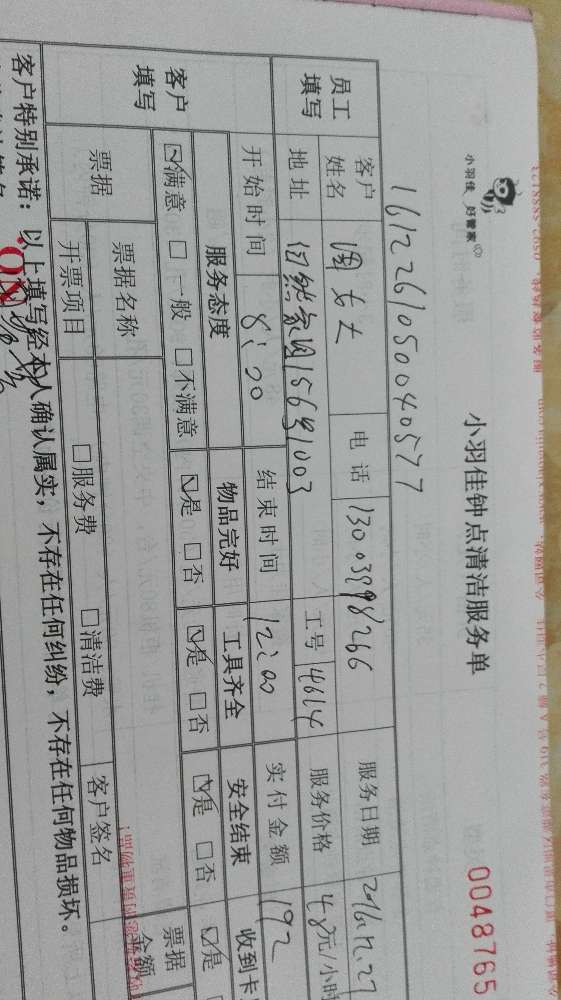 小羽佳 好管家
小羽佳钟点清洁服务单
0048765
1612261050040577
员工填写 客户姓名 周女士 电话 13003998266 服务日期 2016.12.27
地址 自然家园156号1003 工号 4614 服务价格 48元/小时
开始时间 8:00 结束时间 12:00 实付金额 192
客户填写 服务态度 物品完好 工具齐全 安全结束 收到卡
☑满意 □一般 □不满意 ☑是 □否 ☑是 □否 ☑是 □否 ☑是
票据 票据名称 票据金额
开票项目 □服务费 □清洁费 客户签名
客户特别承诺：以上填写经本人确认属实，不存在任何纠纷，不存在任何物品损坏。